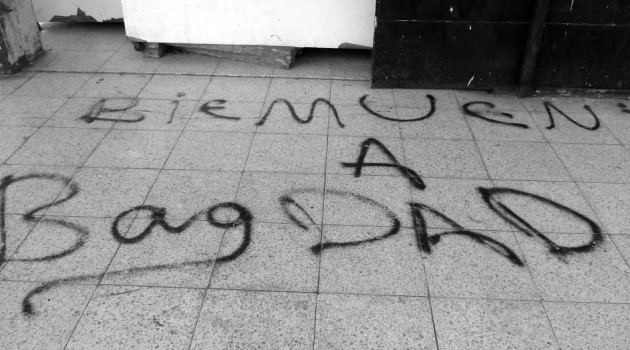 BiEMUEN
A
BagDAD